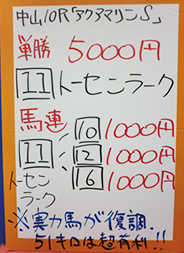 中山10R「アクアマリンS」
単勝 5000円
11 トーセンラーク
馬連
11 トーセンラーク
10 1000円
12 1000円
16 1000円
※実力馬が復調。
51キロは超有利!!